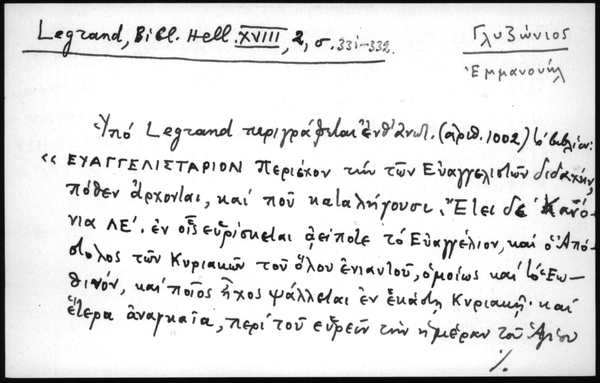 Legrand, Bibl. Hell. XVIII, 2, σ. 331-332.
Γλυζώνιος
Ἐμμανουήλ
Ὑπό Legrand περιγράφεται ἐνθ' ἀνωτ. (ἀριθ. 1002) τὸ βιβλίον:
« ΕΥΑΓΓΕΛΙΣΤΑΡΙΟΝ Περιέχον τὴν τῶν Εὐαγγελιστῶν διδαχήν,
πόθεν ἄρχονται, καὶ ποῦ καταλήγουσι. Ἔτει δὲ Κανό-
νια ΛΕ'. ἐν οἷς εὑρίσκεται ἀείποτε τὸ Εὐαγγέλιον, καὶ ὁ Ἀπό-
στολος τῶν Κυριακῶν τοῦ ὅλου ἐνιαυτοῦ, ὁμοίως καὶ τὸ Ἑω-
θινόν, καὶ ποῖος ἦχος ψάλλεται ἐν ἑκάστῃ Κυριακῇ· καὶ
ἕτερα ἀναγκαῖα, περὶ τοῦ εὑρεῖν τὴν ἡμέραν τοῦ Ἁγίου
./.